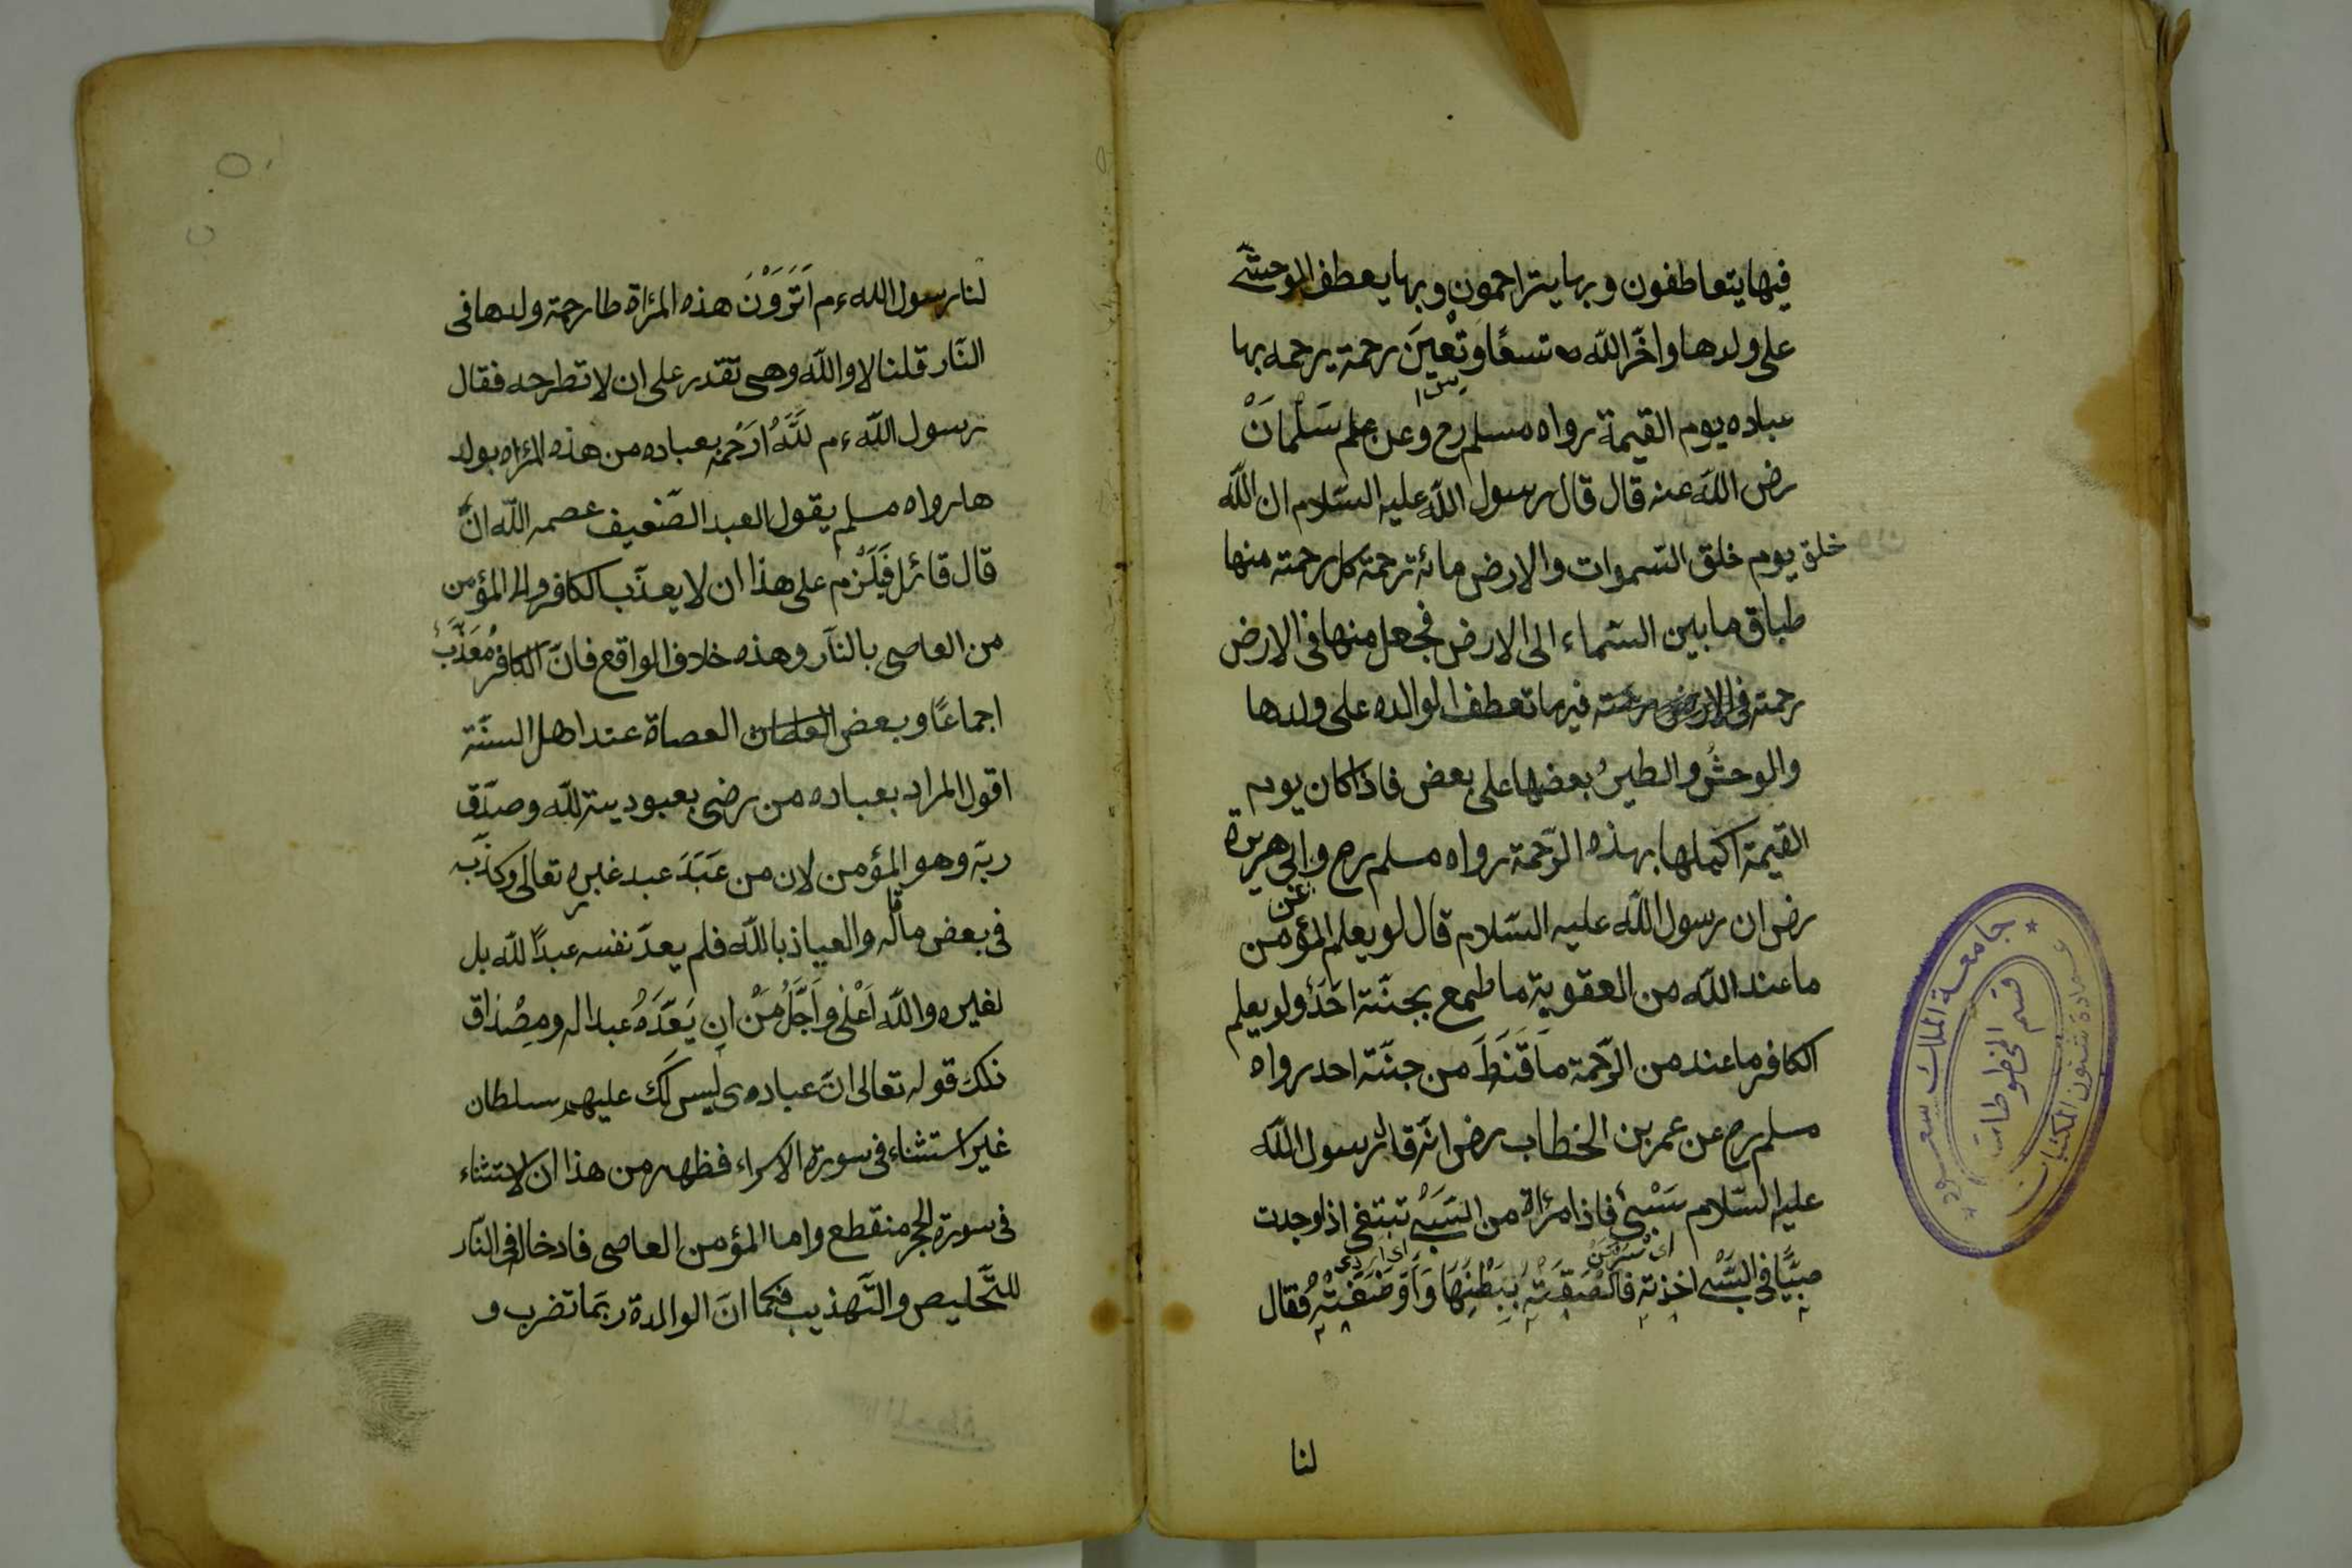 فيها يتعاطفون وبها يتراحمون وبها يعطف الوحشى
على ولدها واخّر الله تسعًا وتعين رحمة يرحمه بها
عباده يوم القيمة رواه مسلم رح وعن سَلْمانَ
رض الله عنه قال قال رسول الله عليه السّلام ان الله
خلق يوم خلق السّموات والارض مائة رحمة كل رحمته منها
طباق ما بين السّماء الى الارض فجعل منها فى الارض
رحمته فيها تعطف الوالده على ولدها
والوحشُ والطيرُ بعضها على بعض فاذا كان يوم
القيمة اكملها بهذه الرّحمة رواه مسلم رح و ابى هريرة
عن
رض ان رسول الله عليه السّلام قال لو يعلم المؤمن
ما عند الله من العقوبة ما طمع بجنّته احَدٌ ولو يعلم
الكافر ما عند من الرّحمة ما قَنَطَ من جنّته احد رواه
مسلم رح عن عمر بن الخطاب رض انّه قال رسول الله
عليه السّلام سَبْىٌ فاذا مرٔاة من السَبْىِ تبتغى اذا وجدت
صبيًّا فى السَّبْىِ اخذته فالصقته ببَطْنِهَا وَاَرْضَعَتْهُ فقال
لنا
لنا رسول الله ءم اَتَرَوْنَ هذه المرٔاة طارحة ولدها فى
النّار قلنا لا والله وهى تقدر على ان لا تطرحه فقال
رسول الله ءم للَّهُ ارَحمُ بعباده من هذه المرٔاه بولد
ها رواه مسلم يقول العبد الضّعيف عصمه الله انْ
قال قائل فَيَلْزم على هذا ان لا يعذّب الكافر ولا المؤمن
من العاصى بالنّار وهذه خلاف الواقع فانّ الكافر مُعَذَّبٌ
اجماعًا وبعض العصاة عند اهل السنّة
اقول المراد بعباده من رضى بعبوديته لله وصدّق
ربّه وهو المؤمن لان من عَبَدَ عبد غيره تعالى وكذّبه
فى بعض ما قاله والعياذ بالله فلم يعدّ نفسه عبدًا لله بل
لغيره والله اَعْلٰى واَجَلُّ مِنْ ان يَعُدَّهُ عبدا له ومِصْدَاق
ذلك قوله تعالى انّ عبادى ليس لك عليهم سلطان
غير استثناء فى سورة الاسراء فظهر من هذا ان الاستثناء
فى سورة الحجر منقطع واما المؤمن العاصى فادخاله فى النّار
للتّخليص والتّهذيب فكما انّ الوالدة ربّما تضرب و
جامعة الملك سعود
عمادة شئون المكتبات
قسم المخطوطات